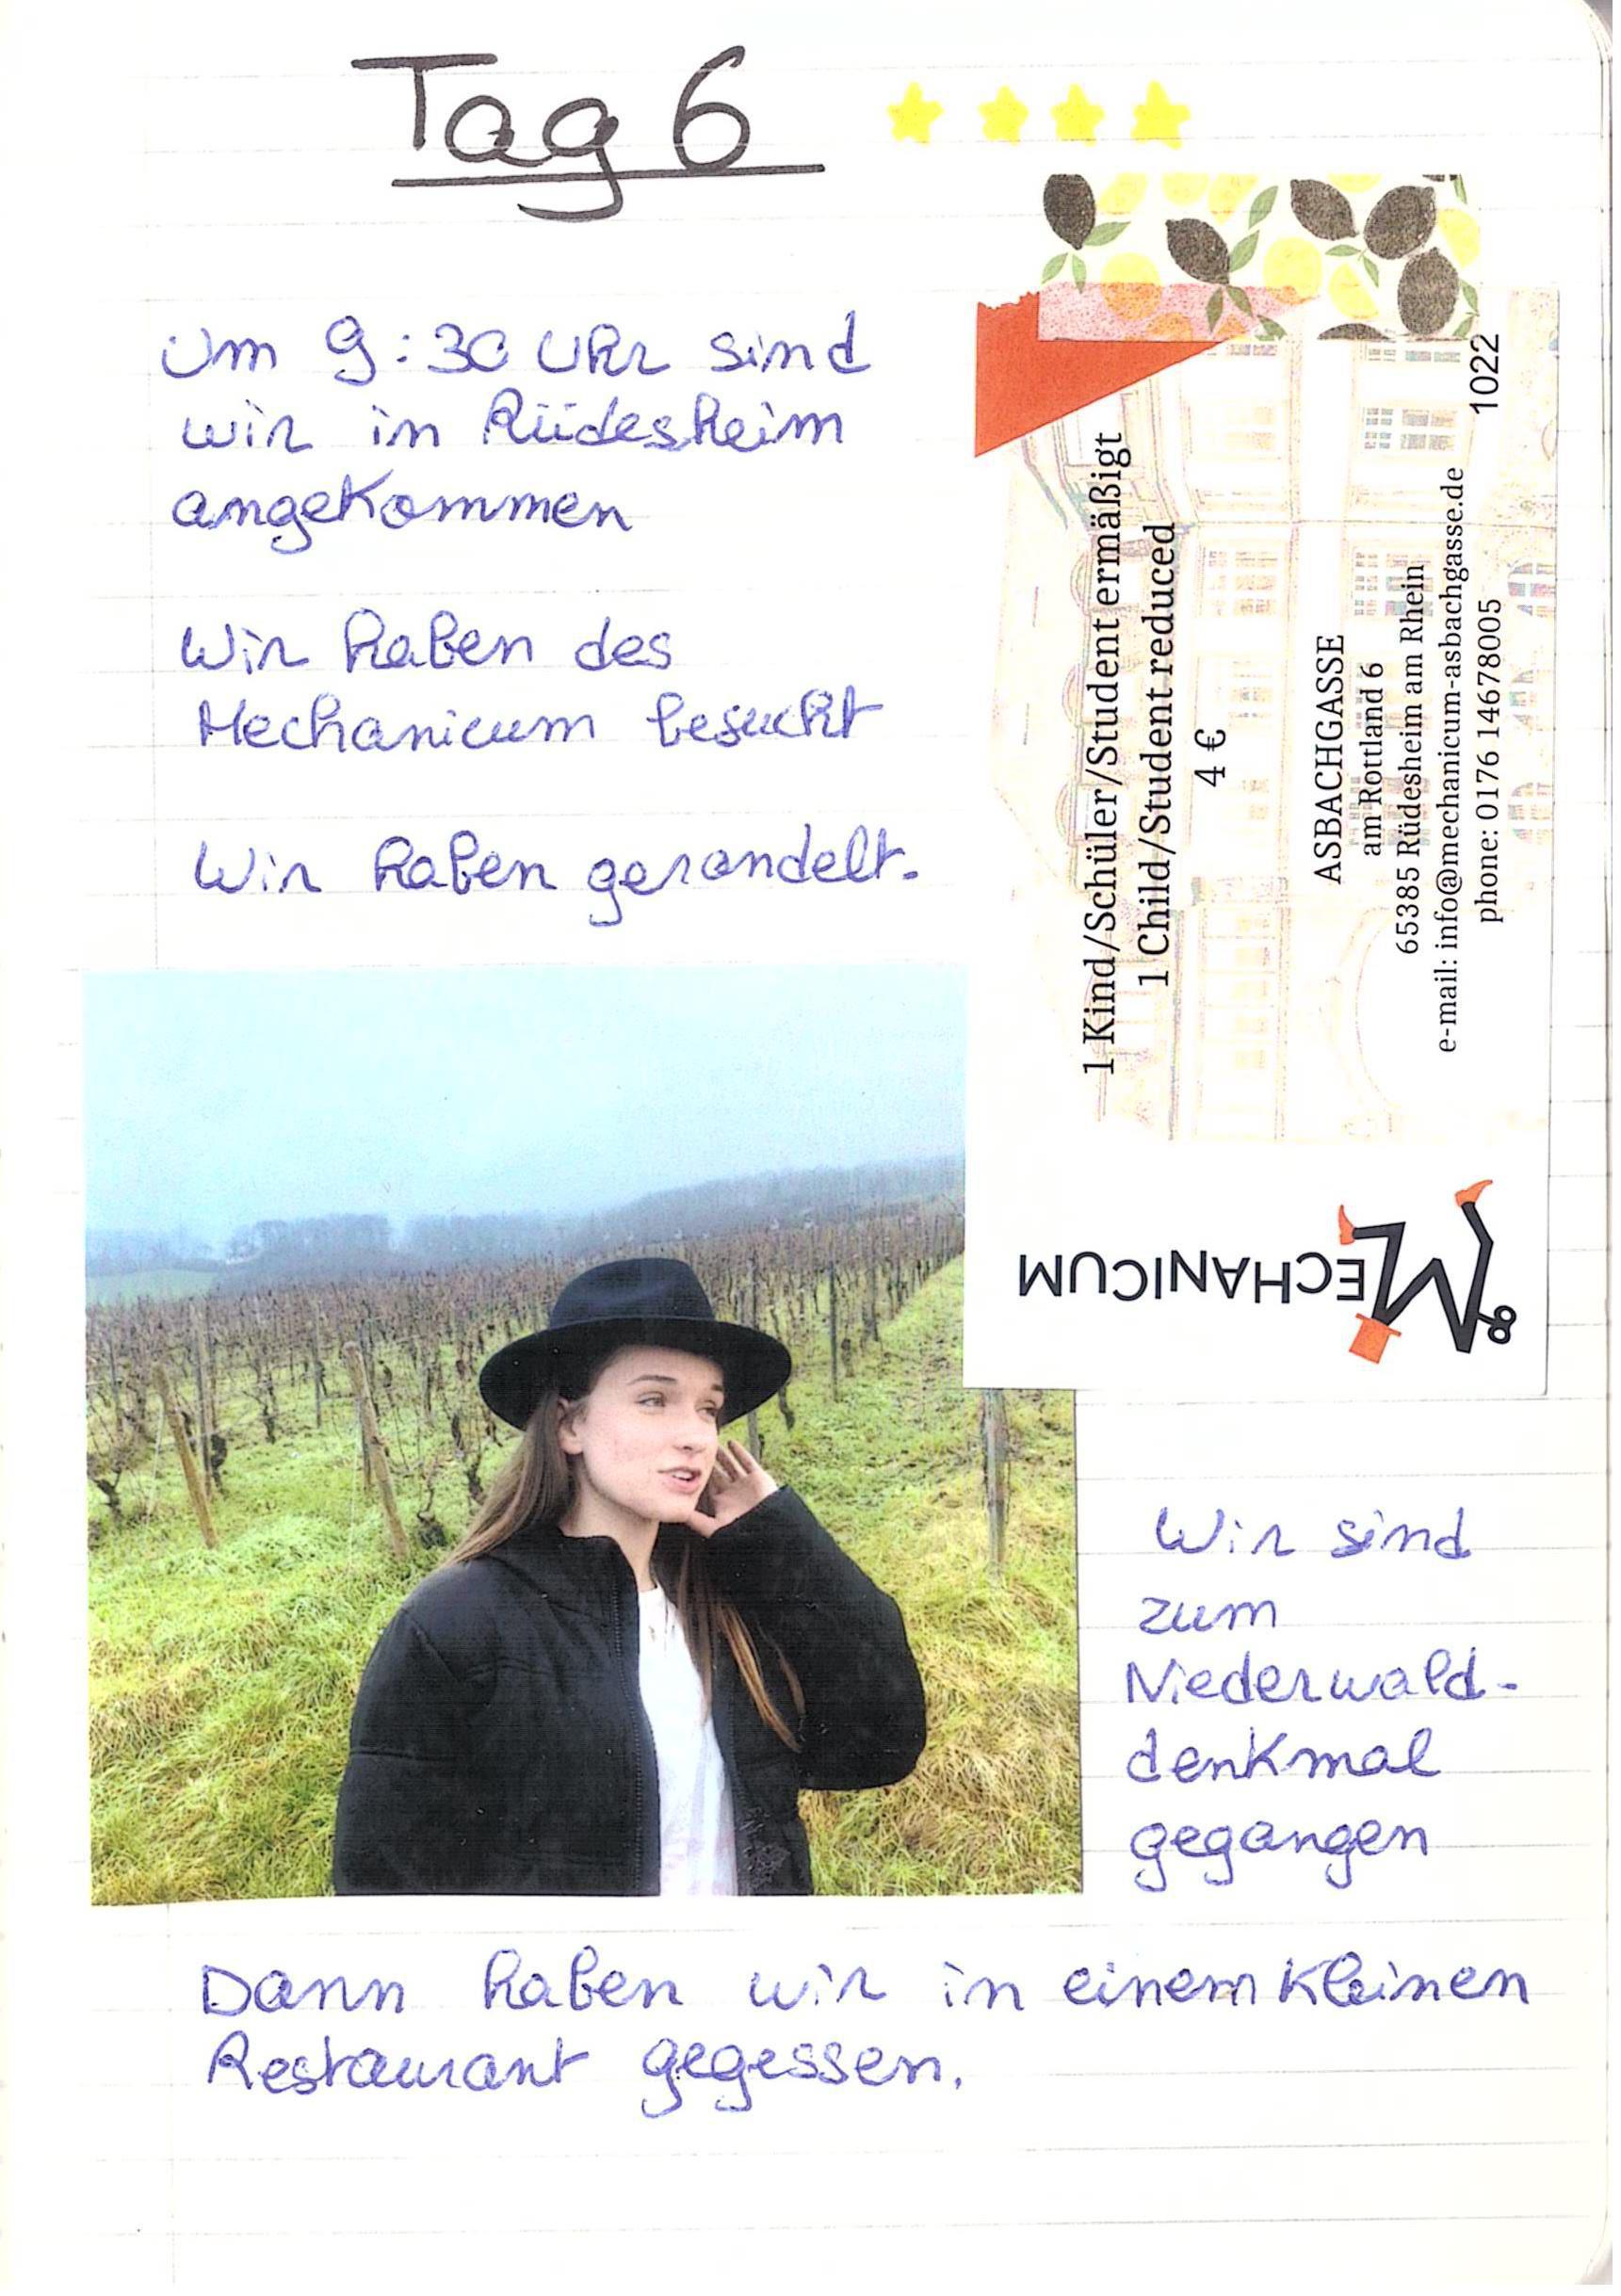 Tag 6
Um 9:30 Uhr sind
wir in Rüdesheim
angekommen
Wir haben des
Mechanicum besucht
Wir haben gerandelt.
1 Kind/Schüler/Student ermäßigt
1 Child/Student reduced
4 €
ASBACHGASSE
am Rottland 6
65385 Rüdesheim am Rhein
e-mail: info@mechanicum-asbachgasse.de
phone: 0176 14678005
1022
MECHANICUM
Wir sind
zum
Niederwald-
denkmal
gegangen
Dann haben wir in einem kleinen
Restaurant gegessen.